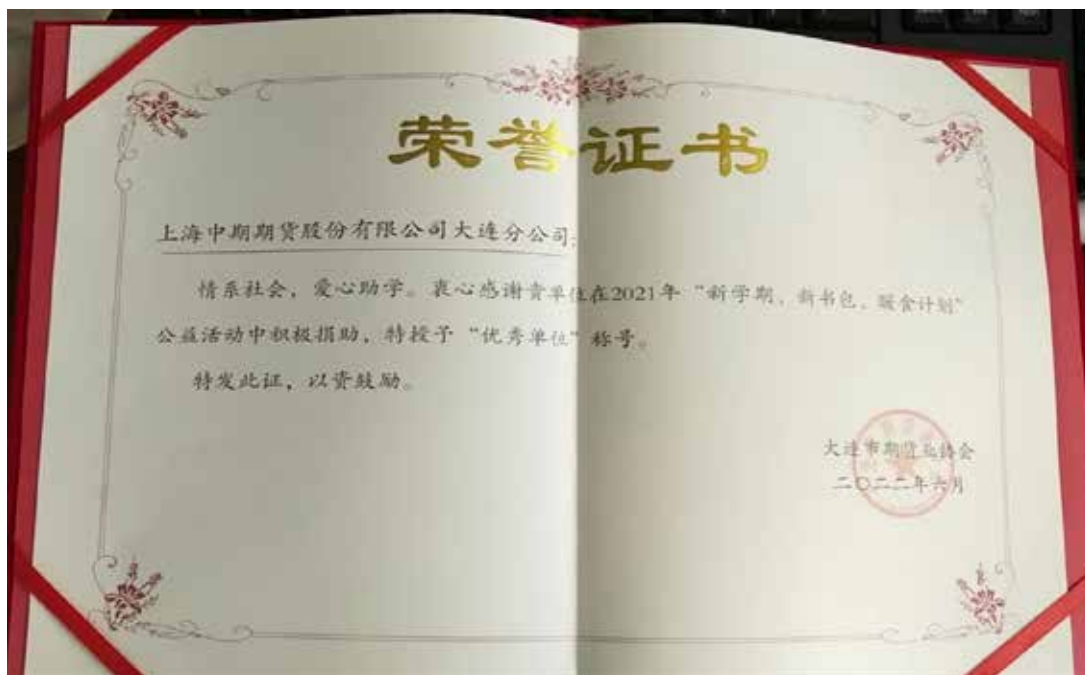 荣誉证书
上海中期期货股份有限公司大连分公司：
情系社会，爱心助学。衷心感谢贵单位在2021年“新学期、新书包、暖食计划”
公益活动中积极捐助，特授予“优秀单位”称号。
特发此证，以资鼓励。
大连市期货业协会
二〇二二年六月